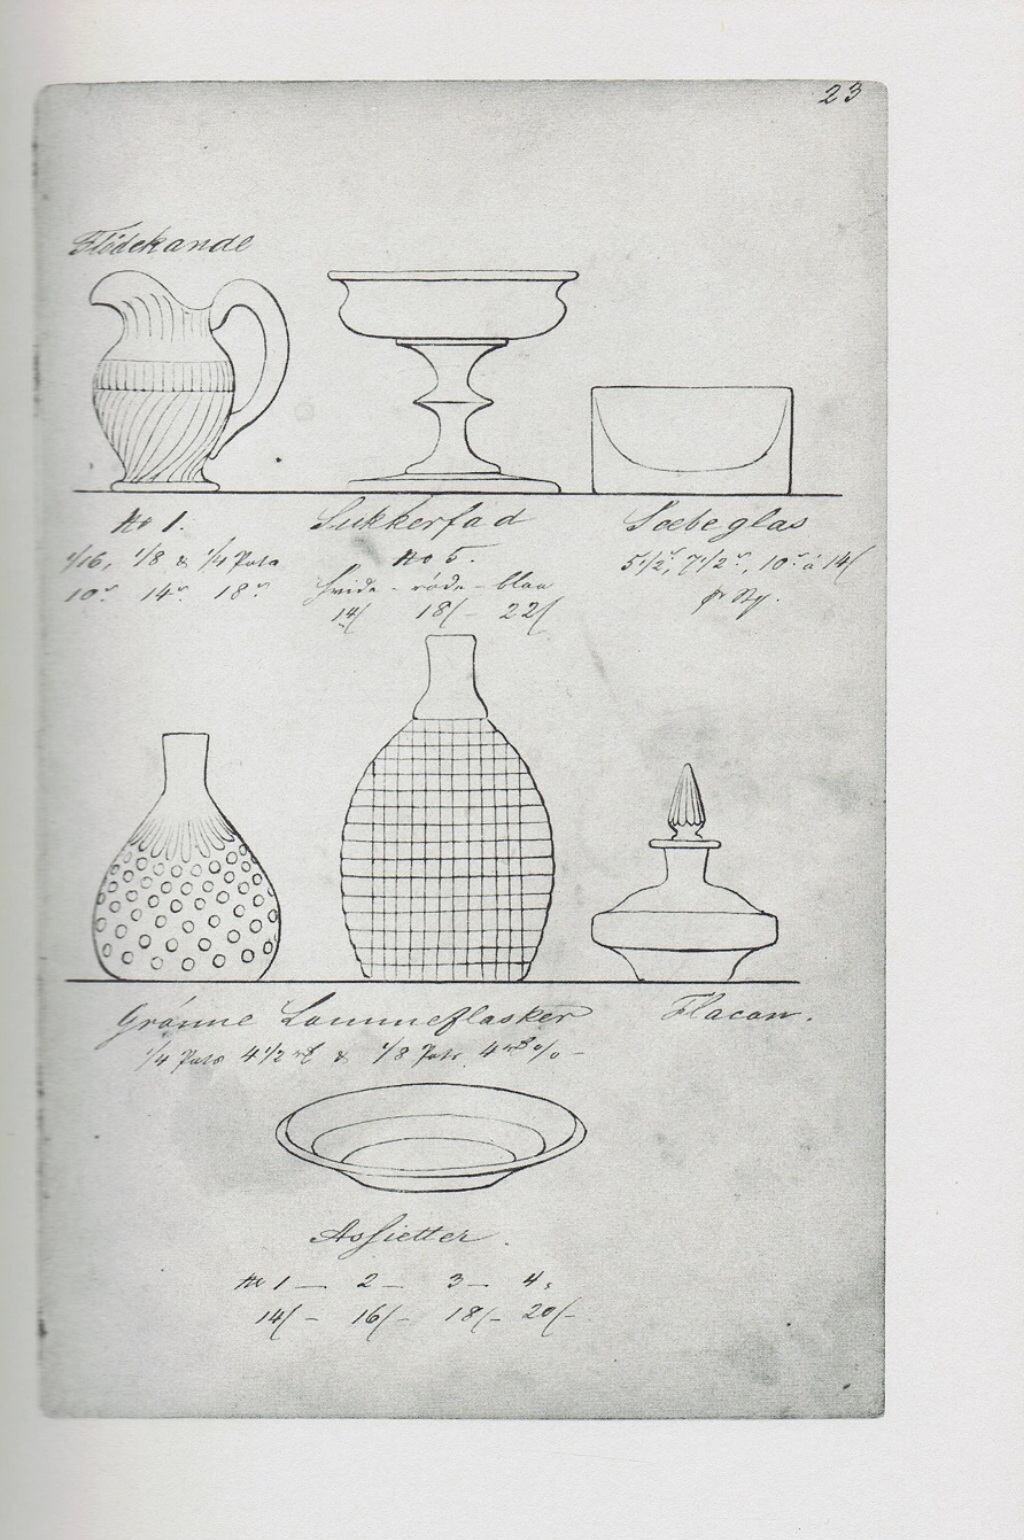 23
Flödekande
No 1.
1/16, 1/8 & 1/4 Pots
10 14 18
Sukkerfad
No 5.
hvide - röde - blaa
14/ 18/ - 22/
Sæbeglas
5 1/2, 7 1/2, 10 á 14/
Grönne Lommeflasker
1/4 Pots 4 1/2 & 1/8 Pots 4 % -
Flacon.
Assietter.
No 1 — 2 — 3 — 4,
14/ - 16/ - 18/ - 20/ -